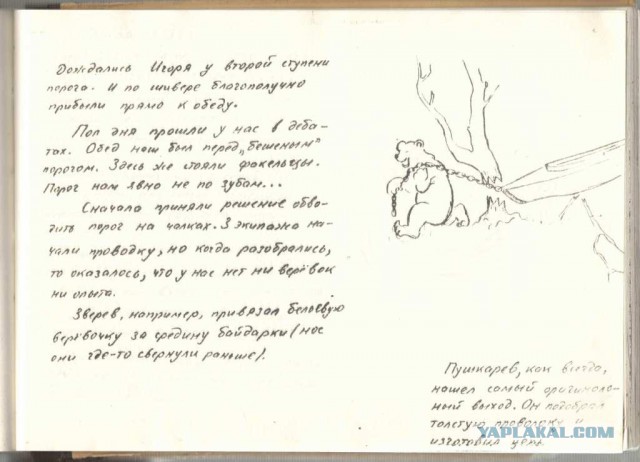 Дождались Игоря у второй ступени
порога. И по шивере благополучно
прибыли прямо к обеду.
Пол дня прошли у нас в деба-
тах. Обед наш был перед „бешеным"
порогом. Здесь же стояли факельцы.
Порог нам явно не по зубам...
Сначала приняли решение обво-
дить порог на чалках. 3 экипажа на-
чали проводку, но когда разобрались,
то оказалось, что у нас нет ни верёвок
ни опыта.
Зверев, например, привязал бельевую
верёвочку за средину байдарки (нос
они где-то свернули раньше).
Пушкарев, как всегда,
нашел самый оригиналь-
ный выход. Он подобрал
толстую проволоку и
изготовил цепь.
YAPLAKAL.COM